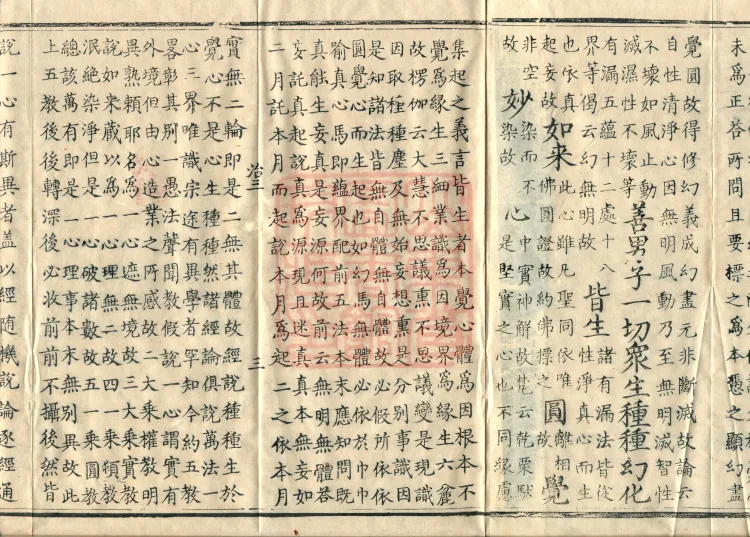 未為正答所問且要標之為本憑之顯幻盡
覺圓故得修幻義成幻盡元非斷滅故論云
自性清淨心因無明風動乃至無明滅智性
不壞如風止動
滅濕性不壞等善男子一切衆生種種幻化
有漏五蘊十二處十八
界等偈云幻無明故皆生諸有漏法皆從
性淨真心而生
也依真
起妄故如來此心雖凡聖同依唯
佛圓證故約佛標之圓離相
故覺
非空
故妙染而不
染故心中實神解故梵云乾栗馱
是堅實之心也不同緣慮
集起之義言皆生者本覺心體為因根本不
覺為緣生三細業識為因境界為緣生六麤
故楞伽云大慧不思議熏不思議變是現識
因取種種塵及無始妄想熏是分別事識因
是知諸法皆無自體無自體故必假所依依
圓覺心而生起也如幻馬無體必依於巾巾
喻真心馬即蘊界配前五法本末應知問既
真能生妄真是妄源何故前云無明無體若
妄託真起說真為源現且迷真真本無妄如
二月託本月而起說本月為起二之依本月
三
實無二輪即是二無其體故經說種種生於
覺心不是心生種種然諸經論俱說萬法一
心三界唯識宗途有異學者罕知今約五教
畧彰其別一愚法聲聞教假說一心謂實有
外境但由心造業之所感故二大乘權教明
異熟賴耶名為一心遮無境故三大乘實教
說如來藏以為一心理無二故四一乘頓教
泯絕染淨但是一心破諸數故五一乘圓教
總該萬有即是一心理事本末無別異故此
上五教後後轉深後必收前前不攝後然皆
說一心有斯異者蓋以經隨機說論逐經通